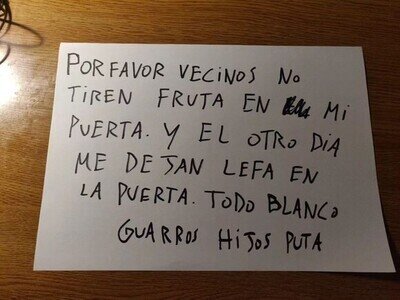 PORFAVOR VECINOS NO
TIREN FRUTA EN MI
PUERTA. Y EL OTRO DIA
ME DEJAN LEFA EN
LA PUERTA. TODO BLANCO
GUARROS HIJOS PUTA